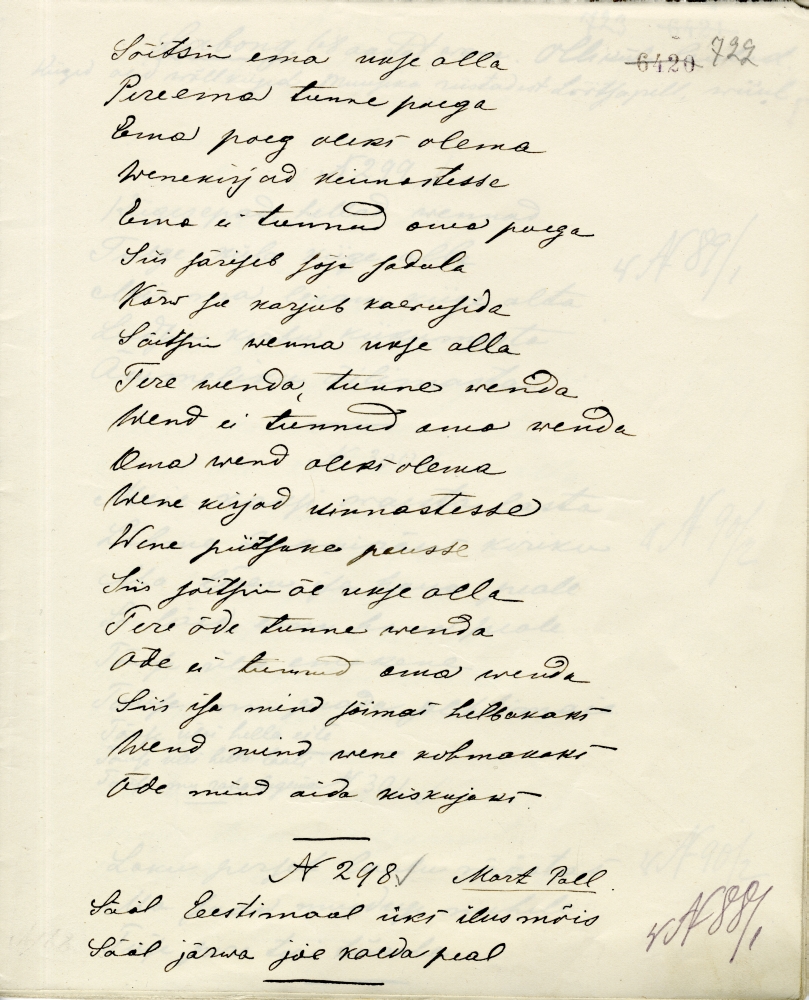 6420 722
Sõitsin ema ukse alla
Pereema tunne poega
Ema poeg oleks olema
Wenekirjad kinnastesse
Ema ei tunnud oma poega
Siis järises sõja sadula
Kõrw see karjub kaerusida
Sõitsin wenna ukse alla
Tere wenda, tunne wenda
Wend ei tunnud oma wenda
Oma wend oleks olema
Wene kirjad kinnastesse
Wene piitsuke peusse
Siis sõitsin õe ukse alla
Tere õde tunne wenda
Õde ei tunnud oma wenda
Siis isa mind sõimas helbakaks
Wend mind wene kohmakaks
Õde mind aida kiskujaks
N 298 Mart Pall.
Sääl Eestimaal üks ilus mõis
Sääl järwa jõe kalda peal
N 88/1